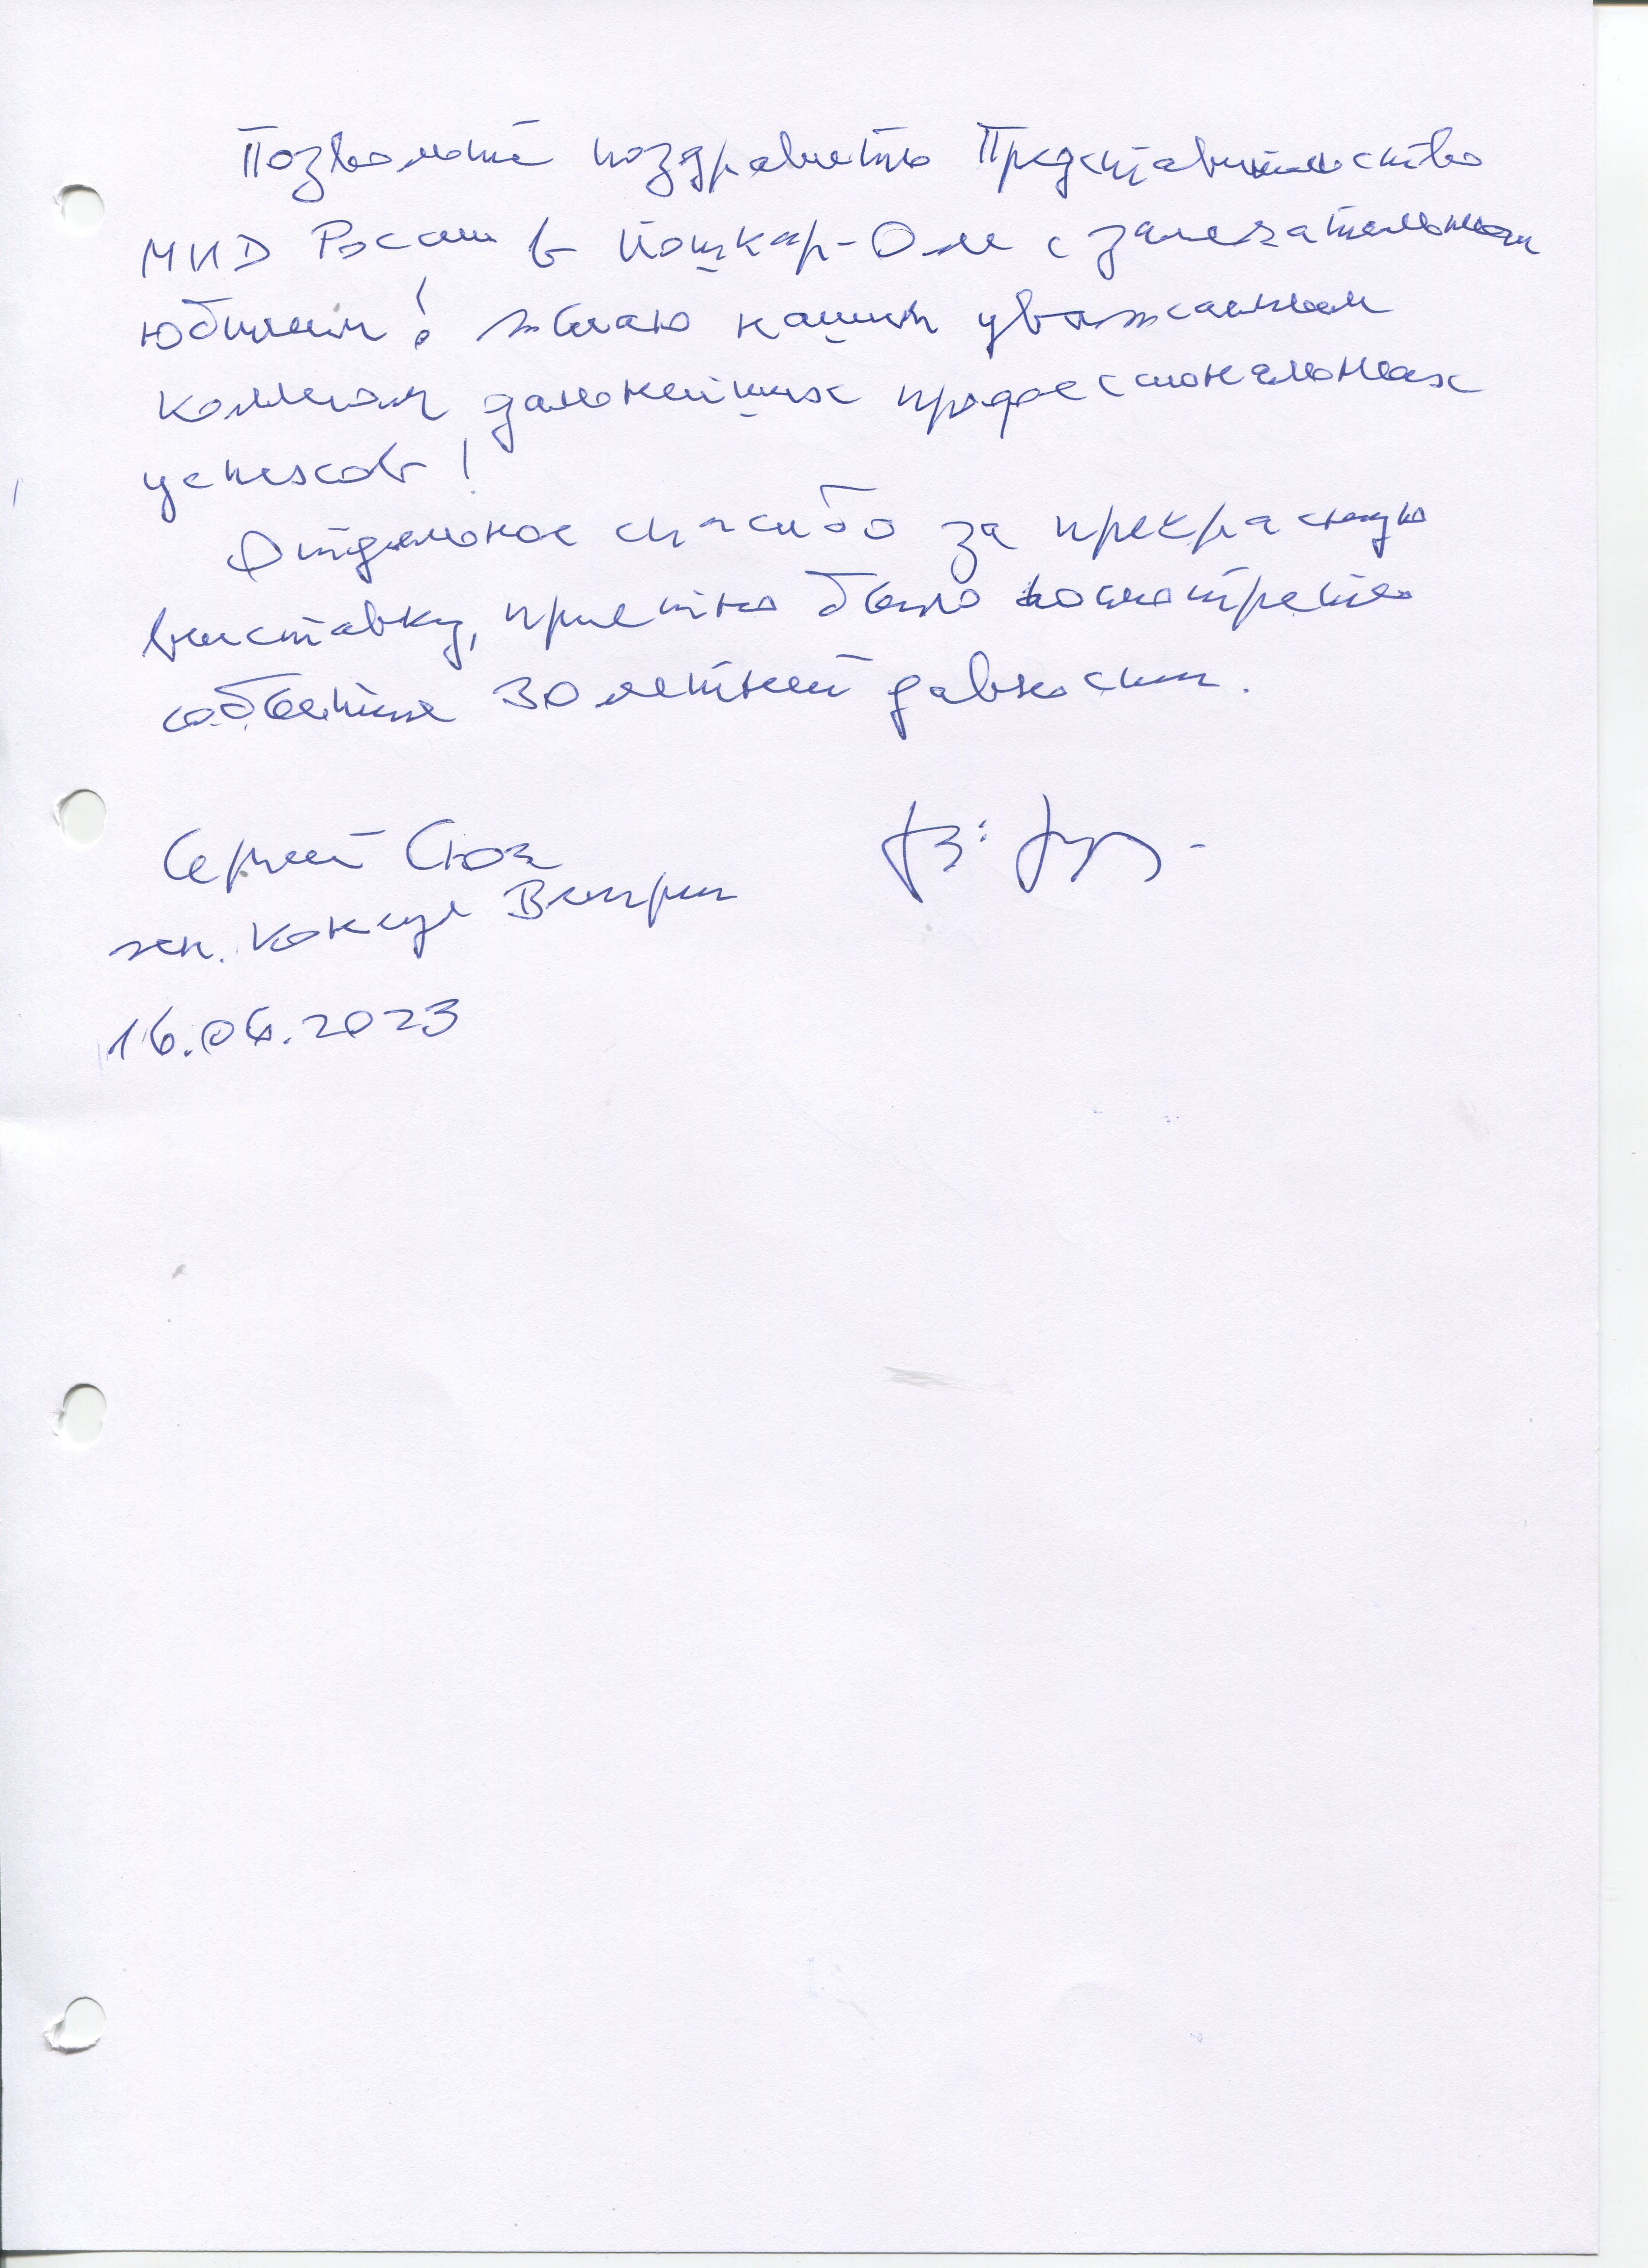 Позвольте поздравить Представительство
МИД России в Йошкар-Оле с замечательным
юбилеем! Желаю нашим уважаемым
коллегам дальнейших профессиональных
успехов!
Отдельное спасибо за прекрасную
выставку, приятно было посмотреть
события 30 летней давности.
Сергей Сюч
ген. консул Венгрии
16.06.2023